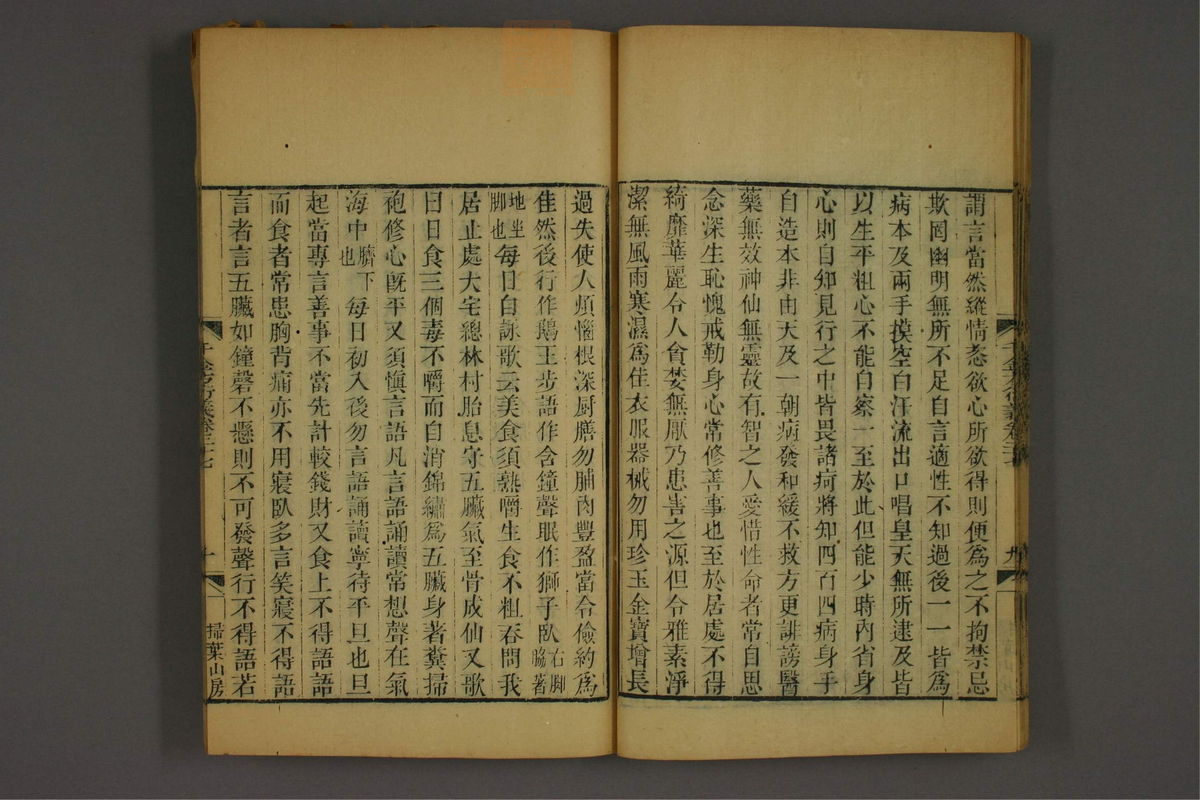 謂言當然縱情恣欲心所欲得則便爲之不拘禁忌
欺罔幽明無所不足自言適性不知過後一一皆爲
病本及兩手摸空白汗流出口唱皇天無所逮及皆
以生平粗心不能自察一至於此但能少時內省身
心則自知見行之中皆畏諸疴將知四百四病身手
自造本非由天及一朝病發和緩不救方更誹謗醫
藥無效神仙無靈故有智之人愛惜性命者常自思
念深生恥愧戒勒身心常修善事也至於居處不得
綺靡華麗令人貪婪無厭乃患害之源但令雅素淨
潔無風雨寒濕爲佳衣服器械勿用珍玉金寶增長
過失使人煩惱根深厨膳勿脯肉豐盈當令儉約爲
佳然後行作鵝王步語作含鐘聲眠作獅子臥右脚脇著
地坐脚也每日自詠歌云美食須熟嚼生食不粗吞問我
居止處大宅總林村胎息守五臟氣至骨成仙又歌
曰日食三個毒不嚼而自消錦繡爲五臟身著糞掃
袍修心旣平又須愼言語凡言語誦讀常想聲在氣
海中臍下也每日初入後勿言語誦讀寧待平旦也旦
起當專言善事不當先計較錢財又食上不得語語
而食者常患胸背痛亦不用寢臥多言笑寢不得語
言者言五臟如鐘磬不懸則不可發聲行不得語若
千金方衍義卷二十七
九
十
掃葉山房